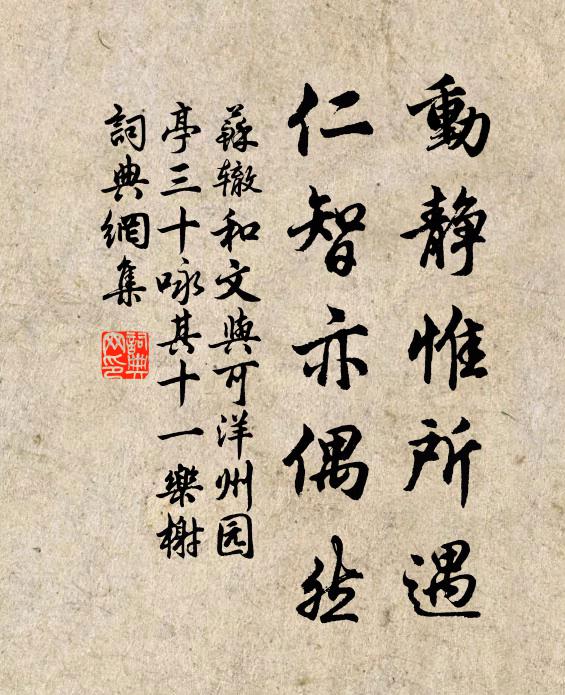 動静惟所遇
仁智亦偶然
蘇辙和文與可洋州园
亭三十咏其十一樂榭
詞典網集
詞典
网印